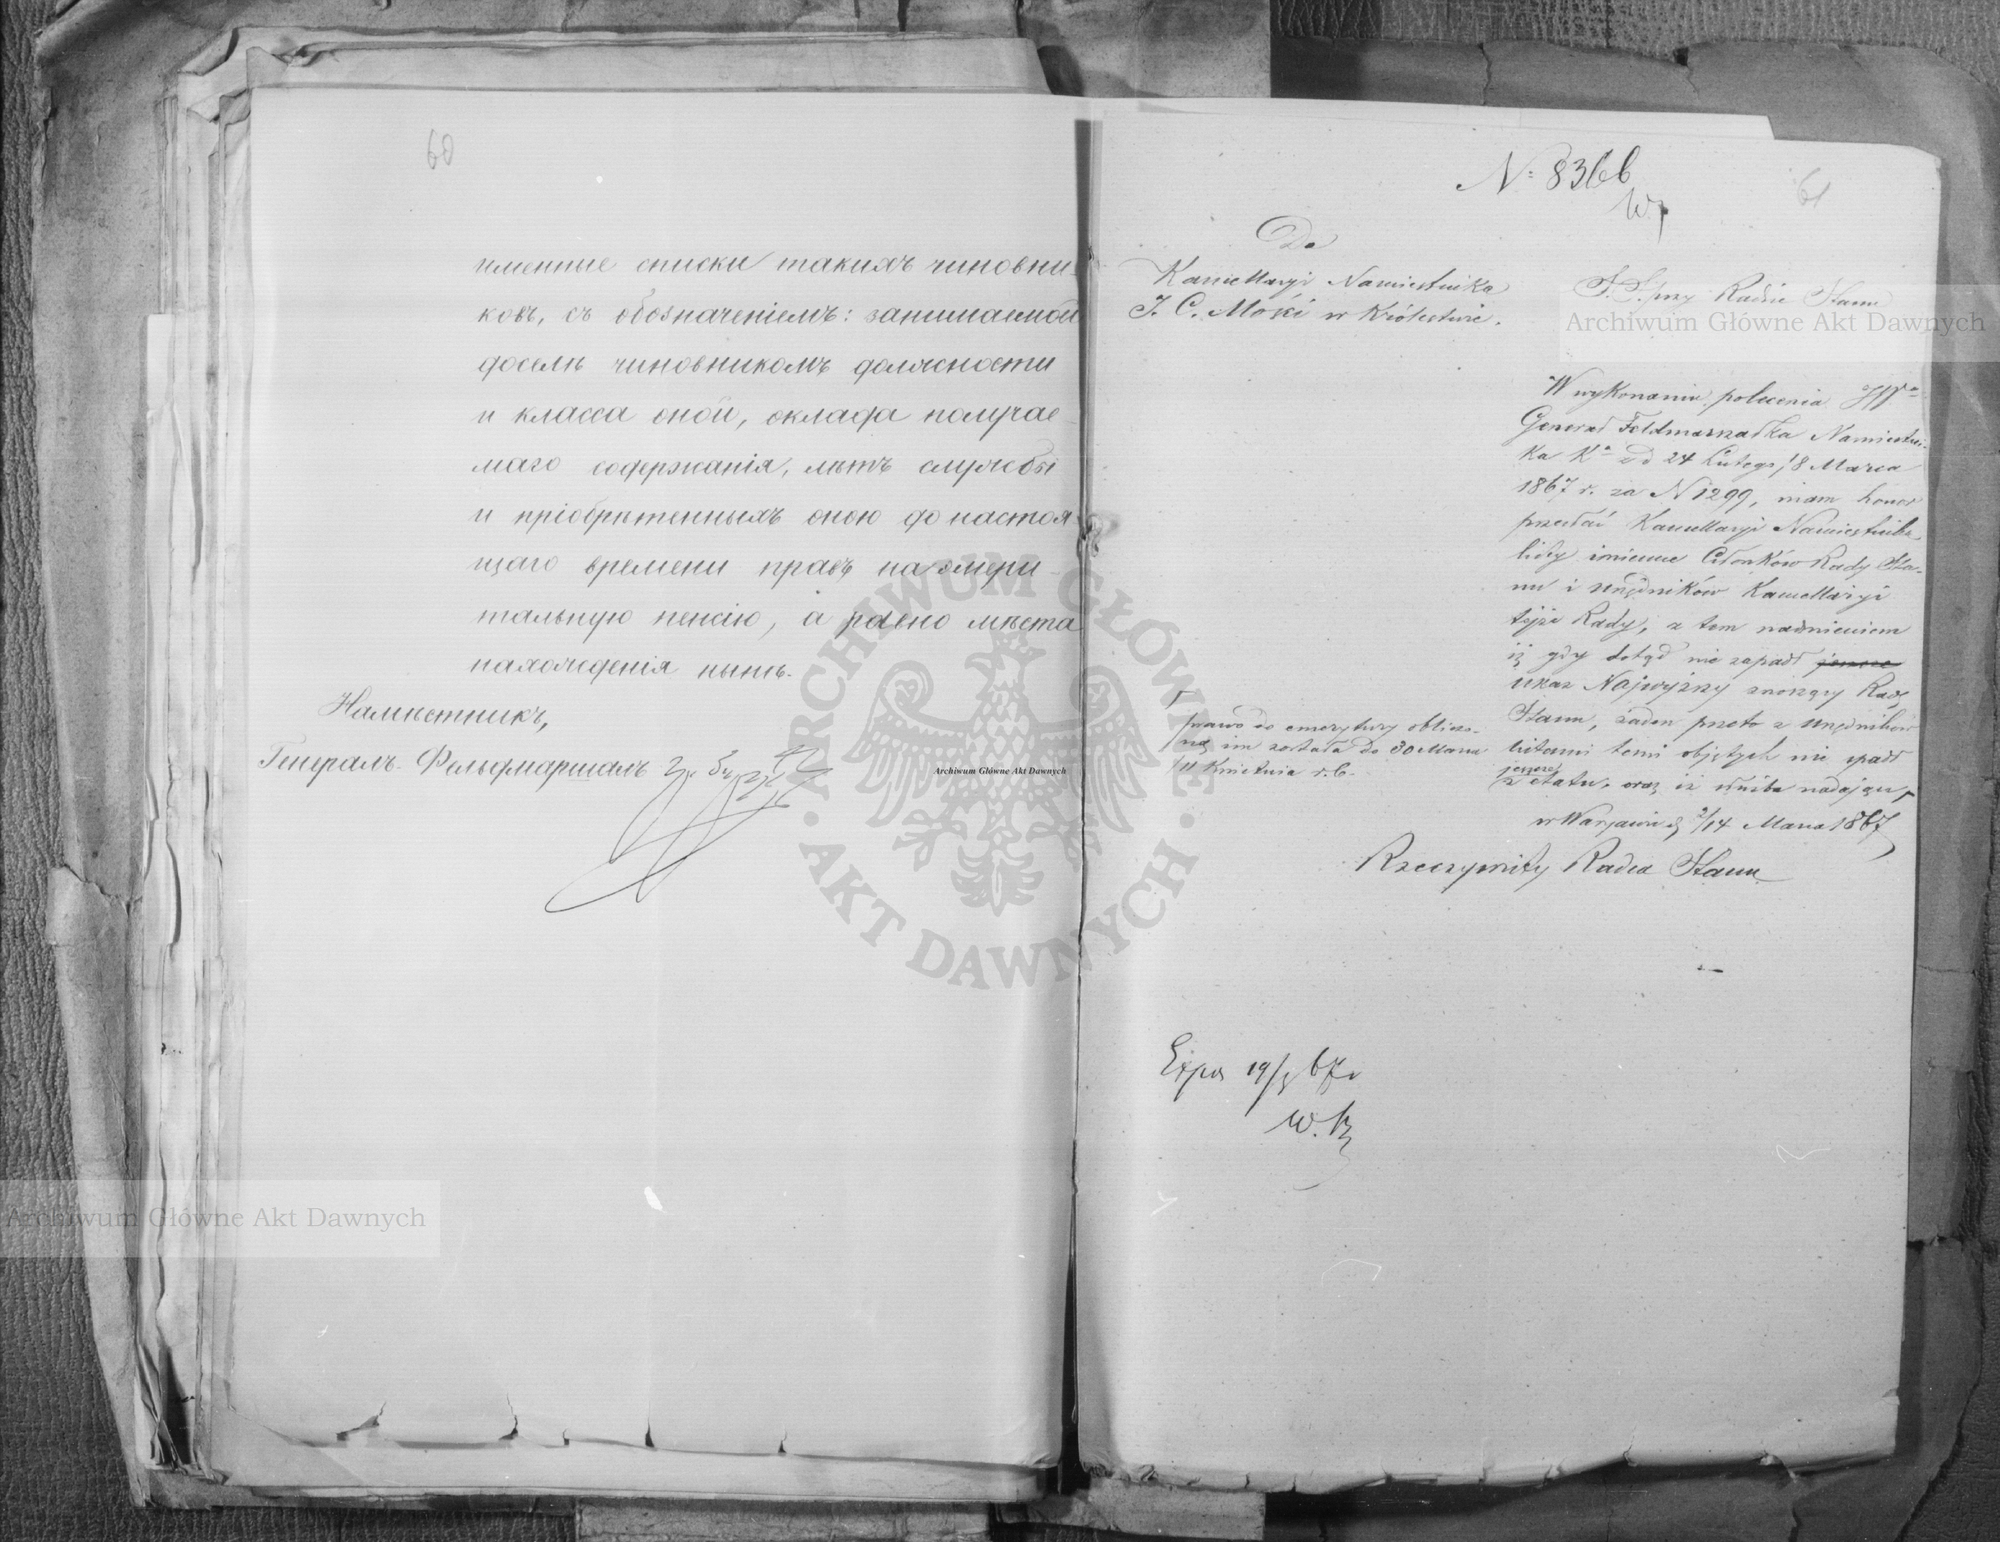 60
именные списки такихъ чиновни-
ковъ, съ обозначеніемъ: занимаемой
доселѣ чиновникомъ должности
и класса оной, оклада получае-
маго содержанія, лѣтъ службы
и пріобрѣтенныхъ оною до настоя-
щаго времени правъ на эмери-
тальную пенсію, а равно мѣста
нахожденія нынѣ.
Намѣстникъ,
Генералъ-Фельдмаршалъ
61
№ 8366
Do
Kancellaryi Namiestnika
J. C. Mości w Królestwie.
S. S. przy Radzie Stanu
W wykonaniu polecenia JW
Generał Feldmarszałka Namiestni-
ka K od 24 Lutego/8 Marca
1867 r. za N 1299, mam honor
przesłać Kancellaryi Namiestnika
listy imienne Członków Rady Sta-
nu i Urzędników Kancellaryi
tejże Rady, z tem nadmieniem
iż gdy dotąd nie zapadł jeszcze
ukaz Najwyższy znoszący Radę
Stanu, żaden przeto z Urzędników
listami temi objętych nie spadł
jeszcze
z etatu, oraz iż służba nadająca
prawo do emerytury oblicza-
ną im została do 30 Marca
11 Kwietnia r. b.
w Warszawie d. 2/14 Marca 1867
Rzeczywisty Radca Stanu
Exp 19/3 67 r
W.
Archiwum Główne Akt Dawnych
Archiwum Główne Akt Dawnych
Archiwum Główne Akt Dawnych
ARCHIWUM GŁÓWNE
AKT DAWNYCH